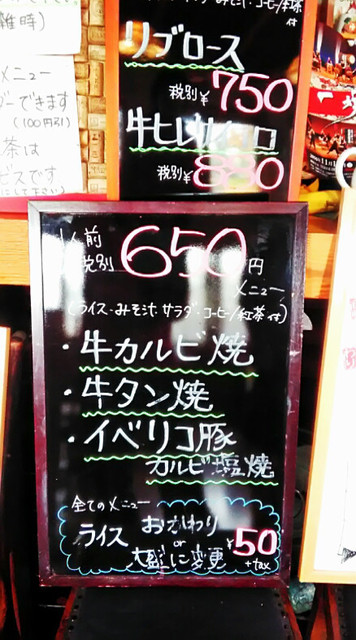 ライス・みそ汁・サラダ・コーヒー/紅茶
付
リブロース
税別¥750
牛ヒレサイコロ
税別¥880
雑時)
メニュー
できます
(100円引)
茶は
ビスです
1人前
税別 650円
メニュー
(ライス・みそ汁・サラダ・コーヒー/紅茶 付)
・牛カルビ焼
・牛タン焼
・イベリコ豚
カルビ塩焼
全てのメニュー
ライス おかわり
or
大盛に変更
¥50
+tax